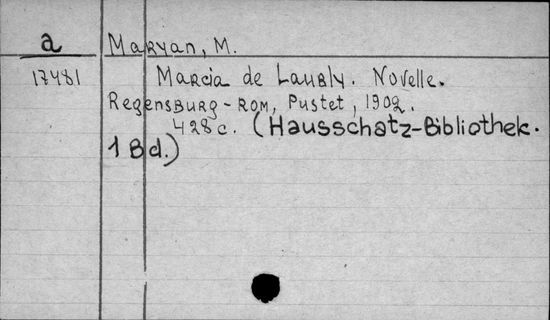 a
Maryan, M.
17481
Marcia de Laubly. Novelle.
Regensburg-Rom, Pustet, 1902.
428 c. (Hausschatz-Bibliothek.
1 Bd.)